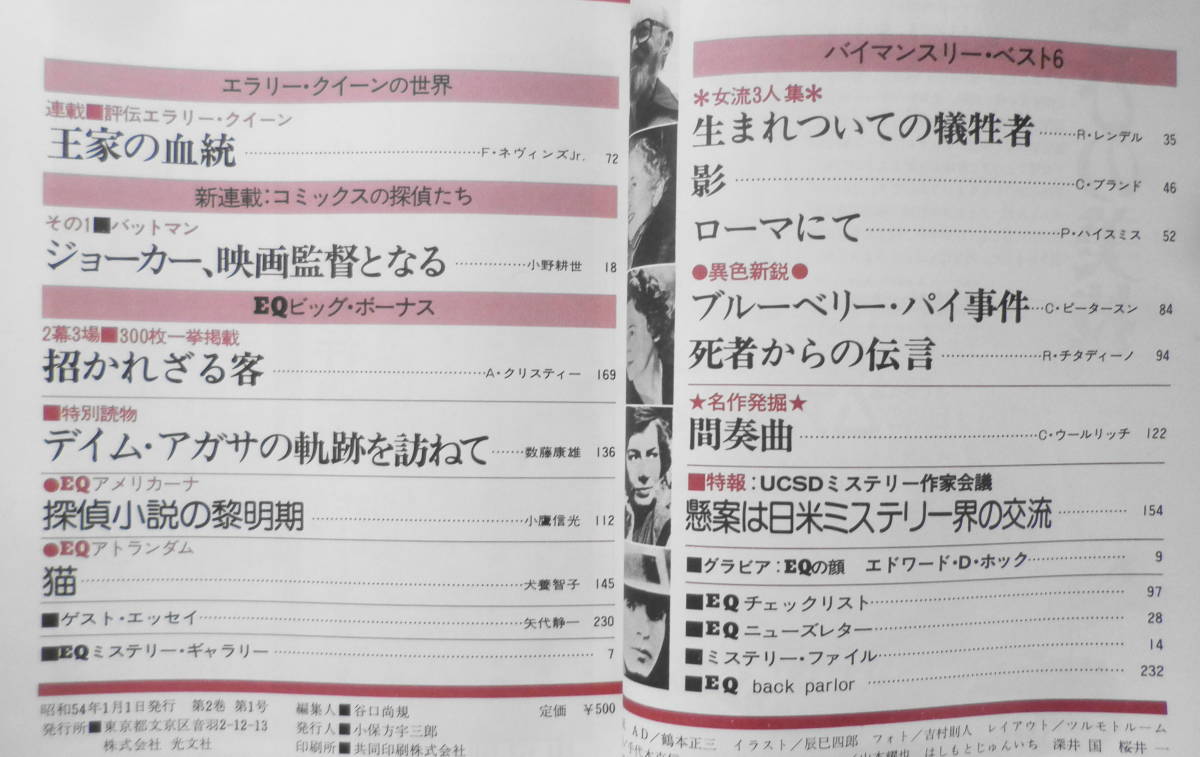 エラリー・クイーンの世界
連載■評伝エラリー・クイーン
王家の血統……F・ネヴィンズJr. 72
新連載:コミックスの探偵たち
その1■バットマン
ジョーカー、映画監督となる……小野耕世 18
EQビッグ・ボーナス
2幕3場■300枚一挙掲載
招かれざる客……A・クリスティー 169
■特別読物
デイム・アガサの軌跡を訪ねて……数藤康雄 136
●EQアメリカーナ
探偵小説の黎明期……小鷹信光 112
●EQアトランダム
猫……犬養智子 145
■ゲスト・エッセイ……矢代静一 230
■EQミステリー・ギャラリー……7
昭和54年1月1日発行 第2巻 第1号 編集人■谷口尚規 定価 ¥500
発行所■東京都文京区音羽2-12-13 発行人■小保方宇三郎
株式会社 光文社 印刷所■共同印刷株式会社
バイマンスリー・ベスト6
＊女流3人集＊
生まれついての犠牲者……R・レンデル 35
影……C・ブランド 46
ローマにて……P・ハイスミス 52
●異色新鋭●
ブルーベリー・パイ事件…C・ピータースン 84
死者からの伝言……R・チタディーノ 94
★名作発掘★
間奏曲……C・ウールリッチ 122
■特報:UCSDミステリー作家会議
懸案は日米ミステリー界の交流……154
■グラビア:EQの顔 エドワード・D・ホック……9
■EQチェックリスト……97
■EQニューズレター……28
■ミステリー・ファイル……14
■EQ back parlor……232
AD/鶴本正三 イラスト/辰巳四郎 フォト/吉村則人 レイアウト/ツルモトルーム
はしもとじゅんいち 深井 国 桜井 一